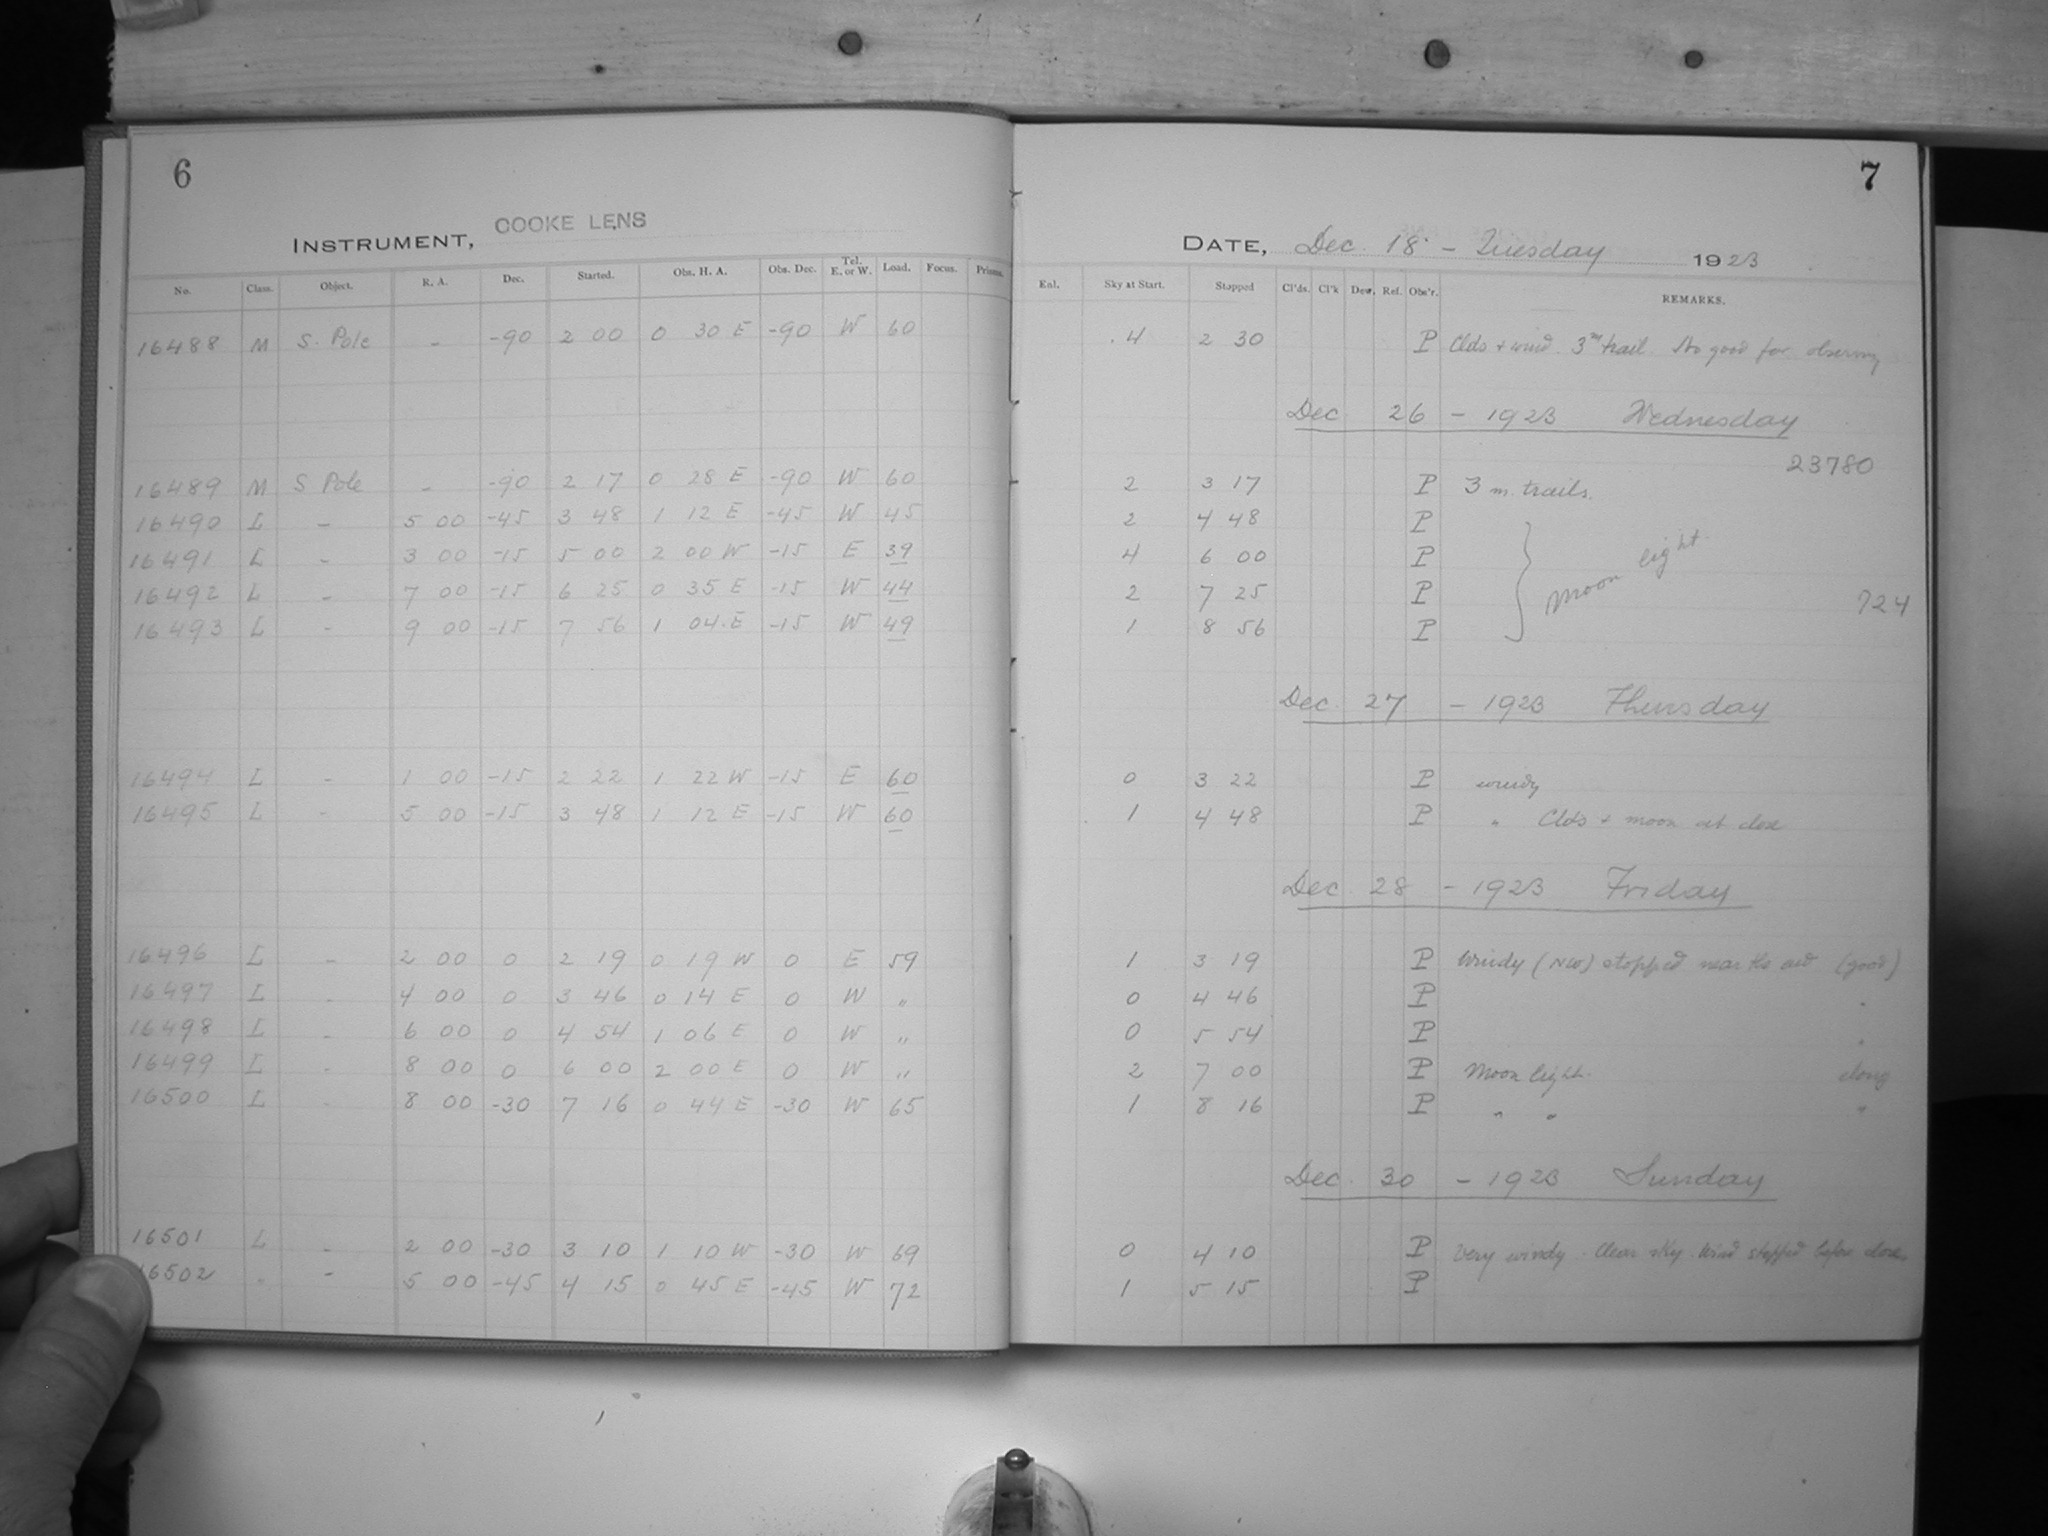 6
INSTRUMENT, COOKE LENS
No. Class. Object. R. A. Dec. Started. Obs. H. A. Obs. Dec. Tel. E. or W. Load. Focus. Prisms.
16488 M S. Pole - -90 2 00 0 30 E -90 W 60
16489 M S Pole - -90 2 17 0 28 E -90 W 60
16490 L - 5 00 -45 3 48 1 12 E -45 W 45
16491 L - 3 00 -15 5 00 2 00 W -15 E 39
16492 L - 7 00 -15 6 25 0 35 E -15 W 44
16493 L - 9 00 -15 7 56 1 04 E -15 W 49
16494 L - 1 00 -15 2 22 1 22 W -15 E 60
16495 L - 5 00 -15 3 48 1 12 E -15 W 60
16496 L - 2 00 0 2 19 0 19 W 0 E 59
16497 L - 4 00 0 3 46 0 14 E 0 W "
16498 L - 6 00 0 4 54 1 06 E 0 W "
16499 L - 8 00 0 6 00 2 00 E 0 W "
16500 L - 8 00 -30 7 16 0 44 E -30 W 65
16501 L - 2 00 -30 3 10 1 10 W -30 W 69
16502 " - 5 00 -45 4 15 0 45 E -45 W 72
7
DATE, Dec. 18 - Tuesday 1923
Enl. Sky at Start. Stopped Cl'ds. Cl'k Dew. Ref. Obs'r. REMARKS.
4 2 30 P Clds + wind. 3m trail. No good for observing
Dec 26 - 1923 Wednesday
23780
2 3 17 P 3 m. trails.
2 4 48 P
4 6 00 P Moon light.
2 7 25 P 724
1 8 56 P
Dec. 27 - 1923 Thursday
0 3 22 P windy
1 4 48 P " Clds + moon at close
Dec. 28 - 1923 Friday
1 3 19 P Windy (NW) stopped near the end (good)
0 4 46 P "
0 5 54 P "
2 7 00 P Moon light.
1 8 16 P " " "
Dec. 30 - 1923 Sunday
0 4 10 P Very windy. Clear sky. Wind stopped before close
1 5 15 P